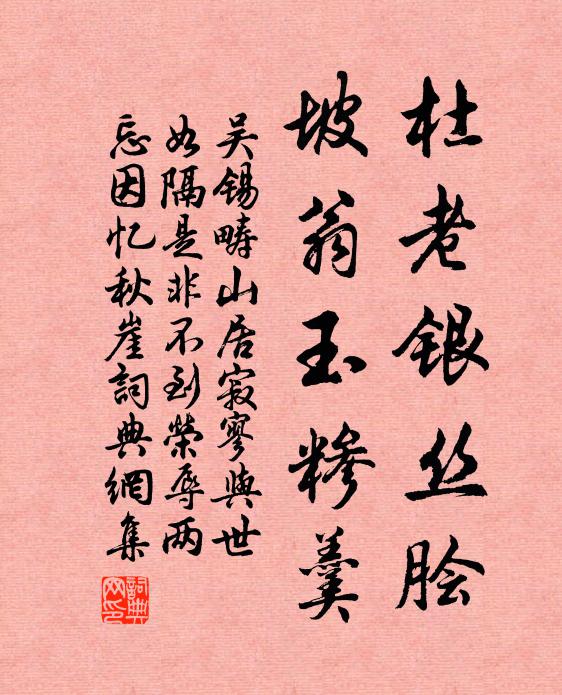 杜老银丝脍
坡翁玉糁羹
吴锡畴山居寂寥与世
如隔是非不到荣辱两
忘因忆秋崖词典网集
词典网印